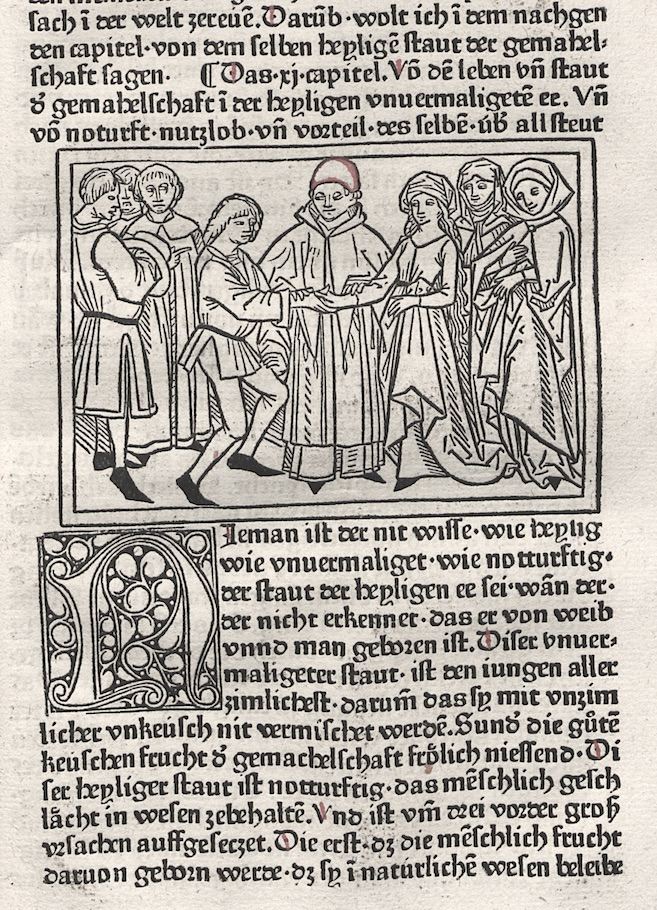 sach ī der welt zereuē. Darūb · wolt ich ī dem nachgen
den capitel · von dem selben heyligē staut der gemahel⸗
schaft sagen. ¶ Das · xj · capitel. Vō dē leben vn̄ staut
d̕ gemahelschaft ī der heyligen vnuermaligetē ee. Vn̄
vō noturft · nutzlob · vn̄ vorteil · des selbē · üb̕ all steut
Nieman ist der nit wisse · wie heylig
wie vnuermaliget · wie notturftig ·
der staut der heyligen ee sei · wān der ·
der nicht erkennet · das er von weib
vnnd man geboren ist. Diser vnuer⸗
maligeter staut · ist den iungen aller
zimlichest · darum̄ das sy mit vnzim
licher vnkeusch nit vermischet werdē. Sund̕ die gůtē
keuschen frucht d̕ gemachelschaft frölich niessend · Di
ser heyliger staut ist notturftig · das mēschlich gesch
lächt in wesen zebehaltē. Vnd ist vm̄ drei vorder groß
vrsachen auffgeseczet. Die erst · dz die mēschlich frucht
daruon geborn werde · dz sy ī natürlichē wesen beleibe